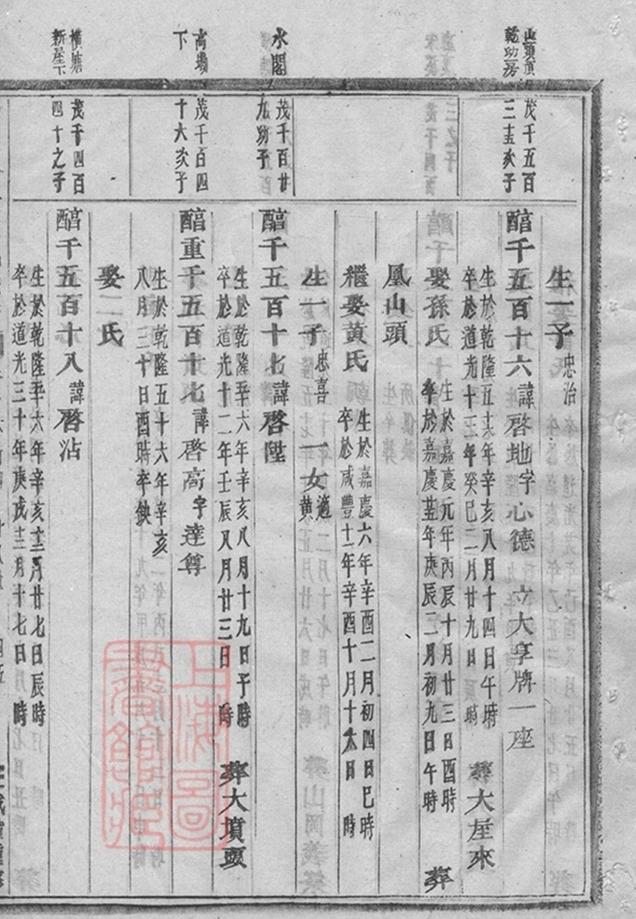 生一子忠治
茂千五百
三圭次子
䤃千五百十六諱啓地字心德 立大享牌一座
生於乾隆五十六年辛亥八月十四日午時
卒於道光十三年癸巳二月廿九日 時 葬大垕來
娶孫氏
生於嘉慶元年丙辰十月廿三日酉時
卒於嘉慶廿五年庚辰二月初九日午時 葬
鳳山頭
繼娶黃氏
生於嘉慶六年辛酉二月初四日巳時
卒於咸豐十一年辛酉十月十六日 時
生一子忠喜 一女適黃
水閣
茂千百廿
九幼子
䤃千五百十七諱啓陞
生於乾隆五十六年辛亥八月十九日子時
卒於道光十二年壬辰八月廿三日 時 葬大墳
高塘
下
茂千百四
十六次子
䤃重千五百十七諱啓高字達尊
生於乾隆五十六年辛亥
八月三十日酉時卒缺
娶二氏
橫塘
新屋下
茂千四百
四十之子
䤃千五百十八諱啓沾
生於乾隆五十六年辛亥十二月廿七日辰時
卒於道光三十年庚戌三月十七日 時
上海圖
書館藏